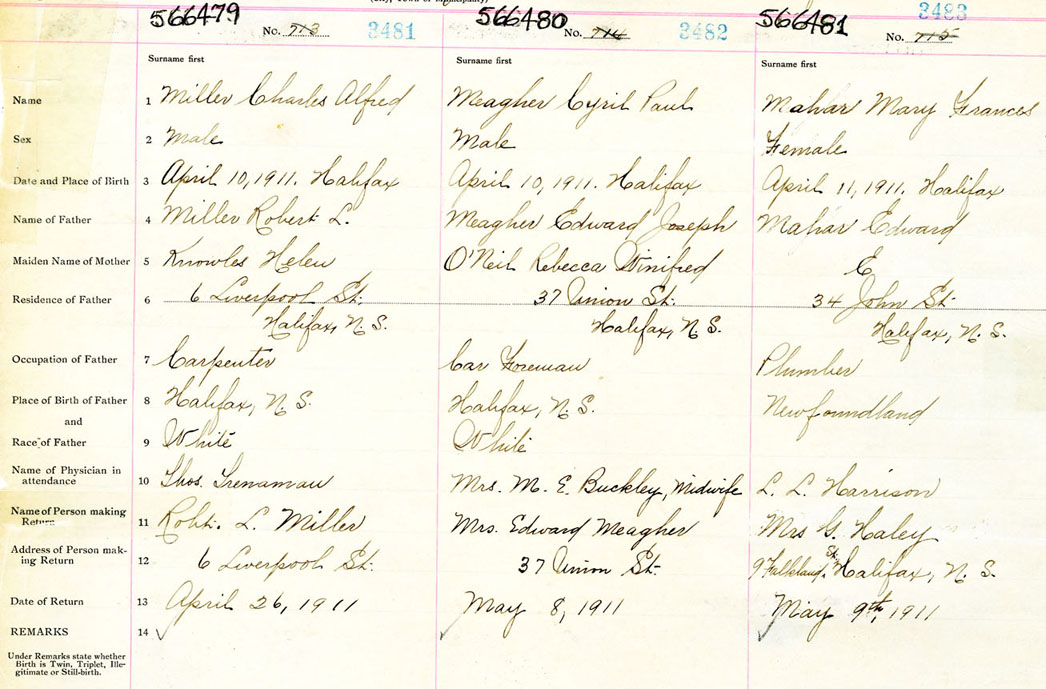 566479 566480 566481
No. 713 3481 No. 714 3482 No. 715 3483
Surname first Surname first Surname first
Name 1 Miller Charles Alfred Meagher Cyril Paul Mahar Mary Frances
Sex 2 Male Male Female
Date and Place of Birth 3 April 10, 1911. Halifax April 10, 1911. Halifax April 11, 1911. Halifax
Name of Father 4 Miller Robert L. Meagher Edward Joseph Mahar Edward
Maiden Name of Mother 5 Knowles Helen O'Neil Rebecca Winifred E
Residence of Father 6 6 Liverpool St. 37 Union St. 34 John St.
Halifax, N. S. Halifax, N. S. Halifax, N. S.
Occupation of Father 7 Carpenter Car Foreman Plumber
Place of Birth of Father 8 Halifax, N. S. Halifax, N. S. Newfoundland
and
Race of Father 9 White White
Name of Physician in
attendance 10 Thos. Trenaman Mrs. M. E. Buckley, Midwife L. L. Harrison
Name of Person making
Return 11 Robt. L. Miller Mrs. Edward Meagher Mrs G. Haley
Address of Person mak-
ing Return 12 6 Liverpool St. 37 Union St. 9 Falkland St. Halifax, N. S.
Date of Return 13 April 26, 1911 May 8, 1911 May 9th, 1911
REMARKS 14
Under Remarks state whether
Birth is Twin, Triplet, Ille-
gitimate or Still-birth.